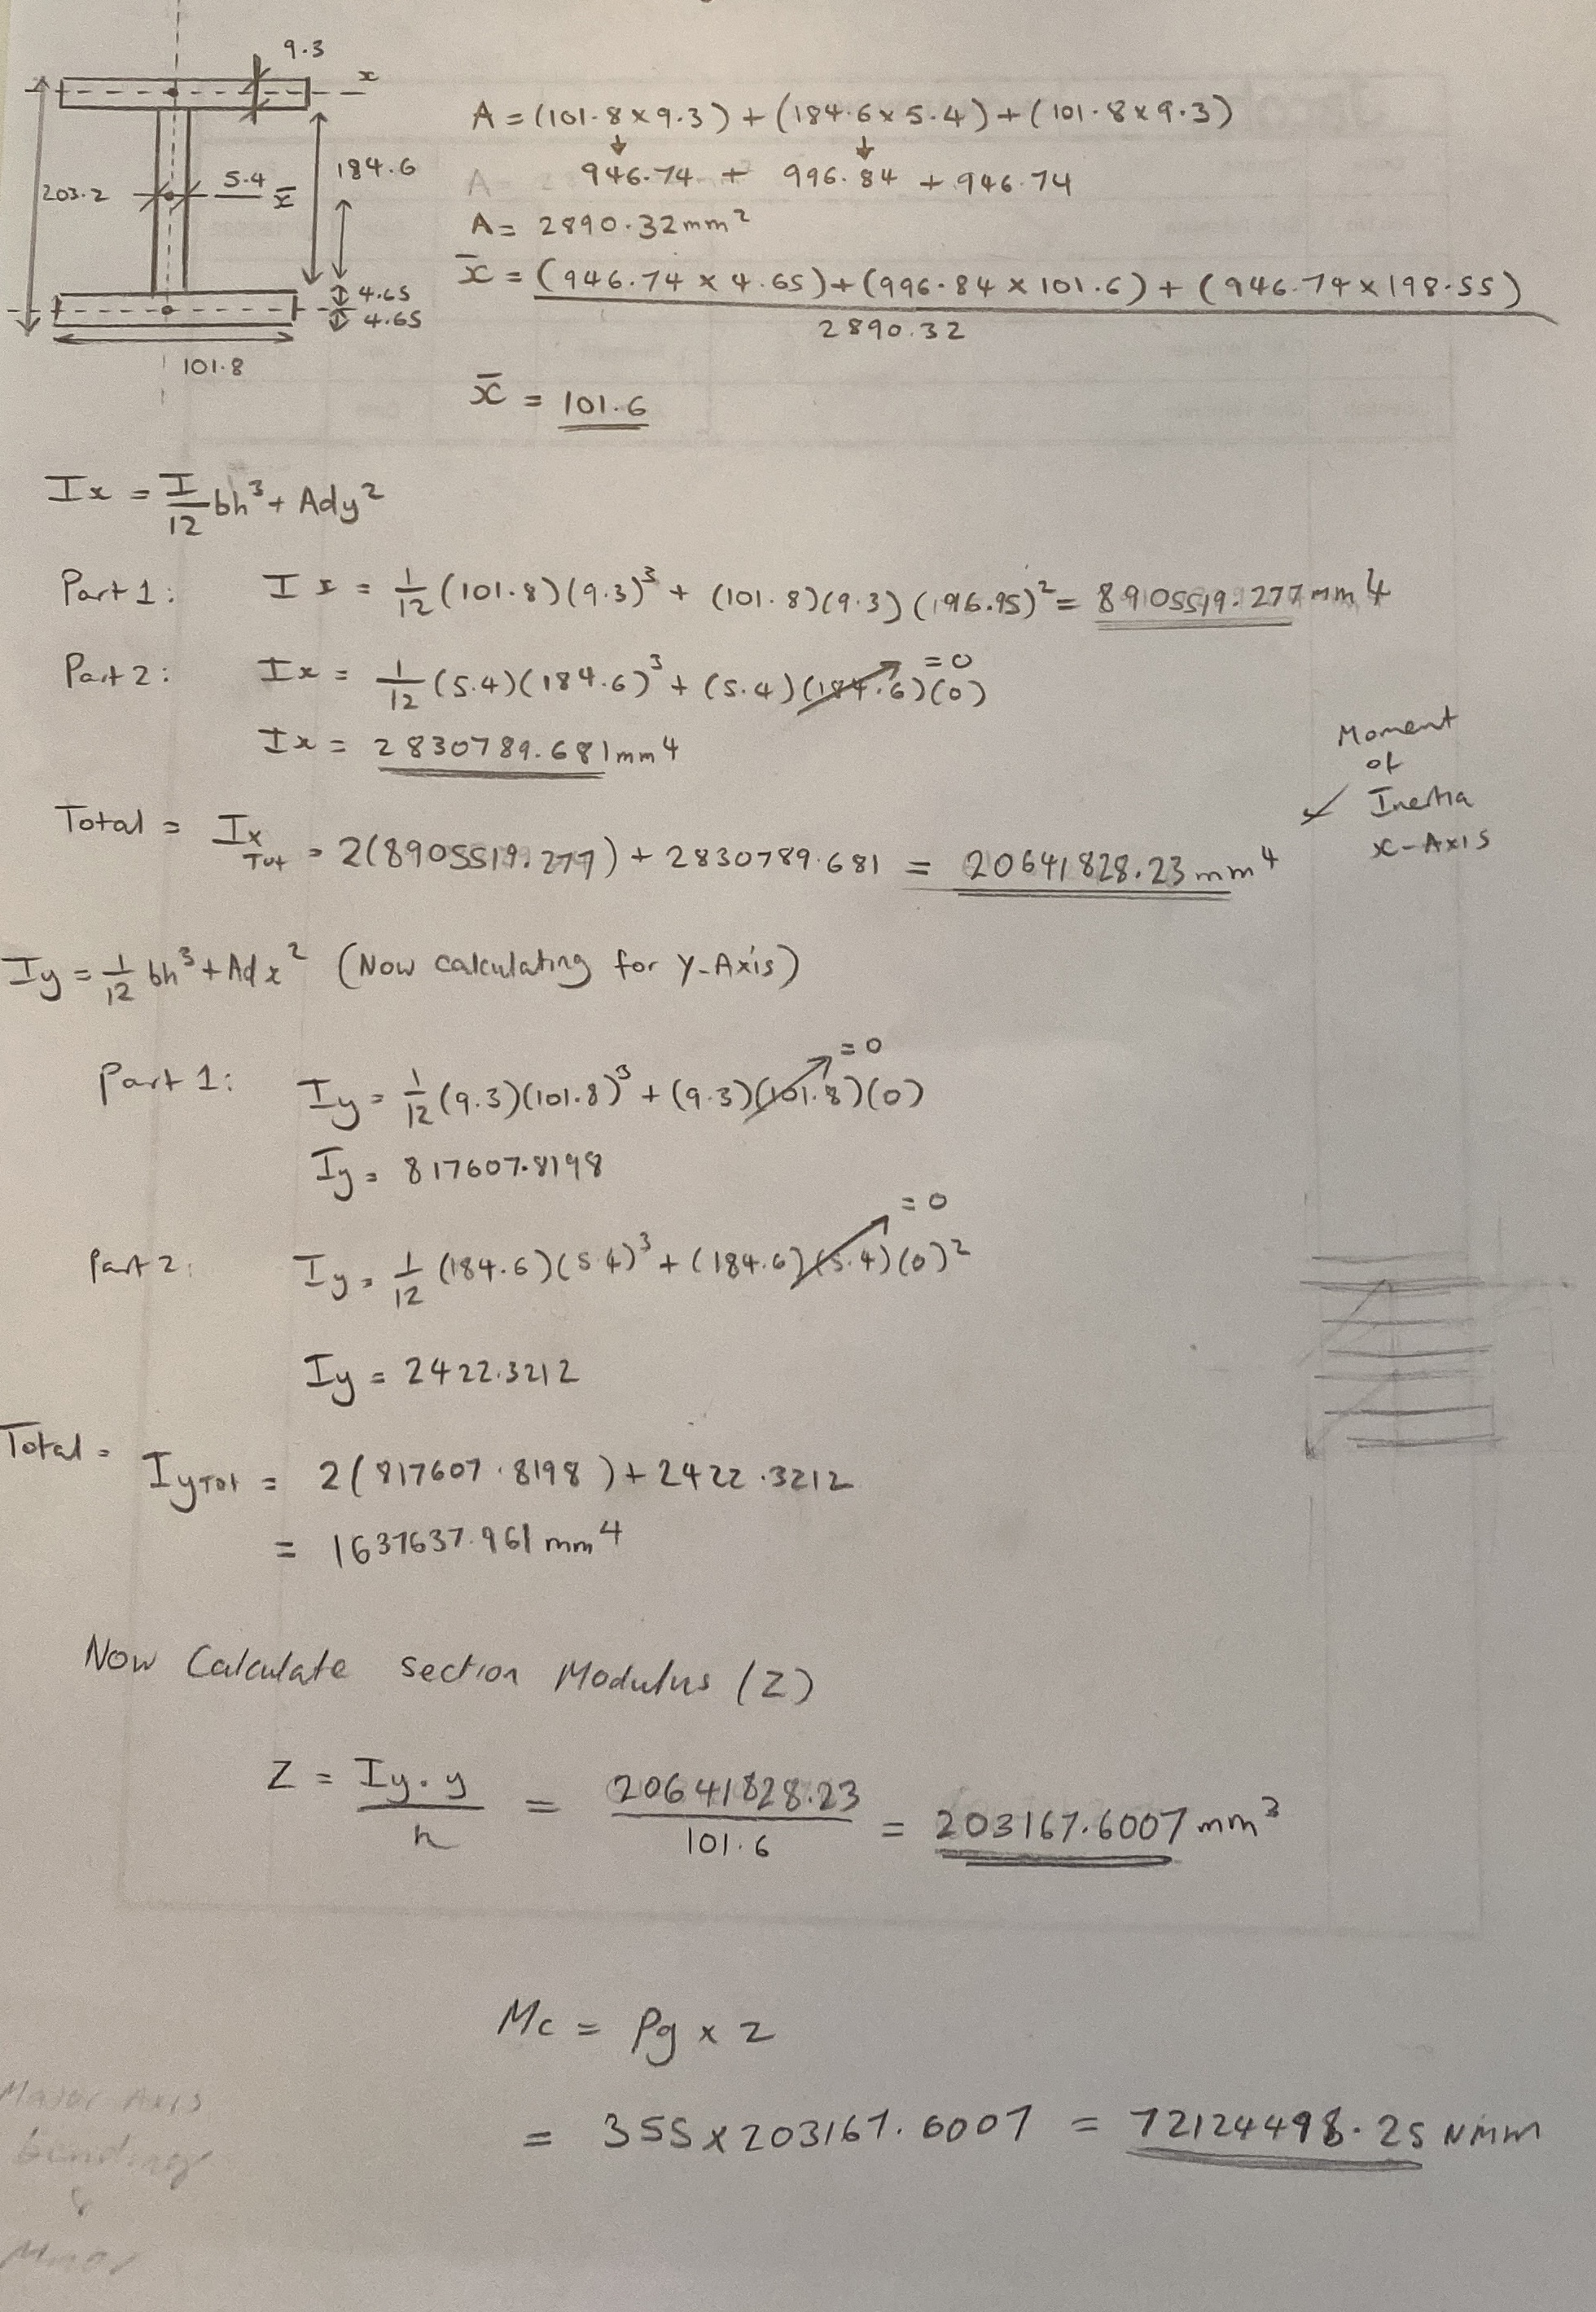 9.3
x
203.2
5.4
x̄
184.6
4.65
4.65
101.8
A = (101.8 x 9.3) + (184.6 x 5.4) + (101.8 x 9.3)
↓ ↓
A 946.74 + 996.84 + 946.74
A = 2890.32mm²
x̄ = (946.74 x 4.65) + (996.84 x 101.6) + (946.74 x 198.55)
2890.32
x̄ = 101.6
Ix = I/12 bh³ + Ady²
Part 1: Ix = 1/12 (101.8)(9.3)³ + (101.8)(9.3)(196.95)² = 8905519.277 mm4
Part 2: Ix = 1/12 (5.4)(184.6)³ + (5.4)(184.6)(0) = 0
Ix = 2830789.681mm4
Moment
of
Inertia
x-Axis
Total = Ix Tot = 2(8905519.277) + 2830789.681 = 20641828.23 mm4
Iy = 1/12 bh³ + Adx² (Now calculating for Y-Axis)
Part 1: Iy = 1/12 (9.3)(101.8)³ + (9.3)(101.8)(0) = 0
Iy = 817607.8198
Part 2: Iy = 1/12 (184.6)(5.4)³ + (184.6)(5.4)(0)² = 0
Iy = 2422.3212
Total = IyTot = 2(817607.8198) + 2422.3212
= 1637637.961 mm4
Now Calculate section Modulus (Z)
Z = Iy.y/h = 20641828.23/101.6 = 203167.6007 mm³
Mc = Pg x z
= 355 x 203167.6007 = 72124498.25 NMM
Major Axis
bending
&
Minor